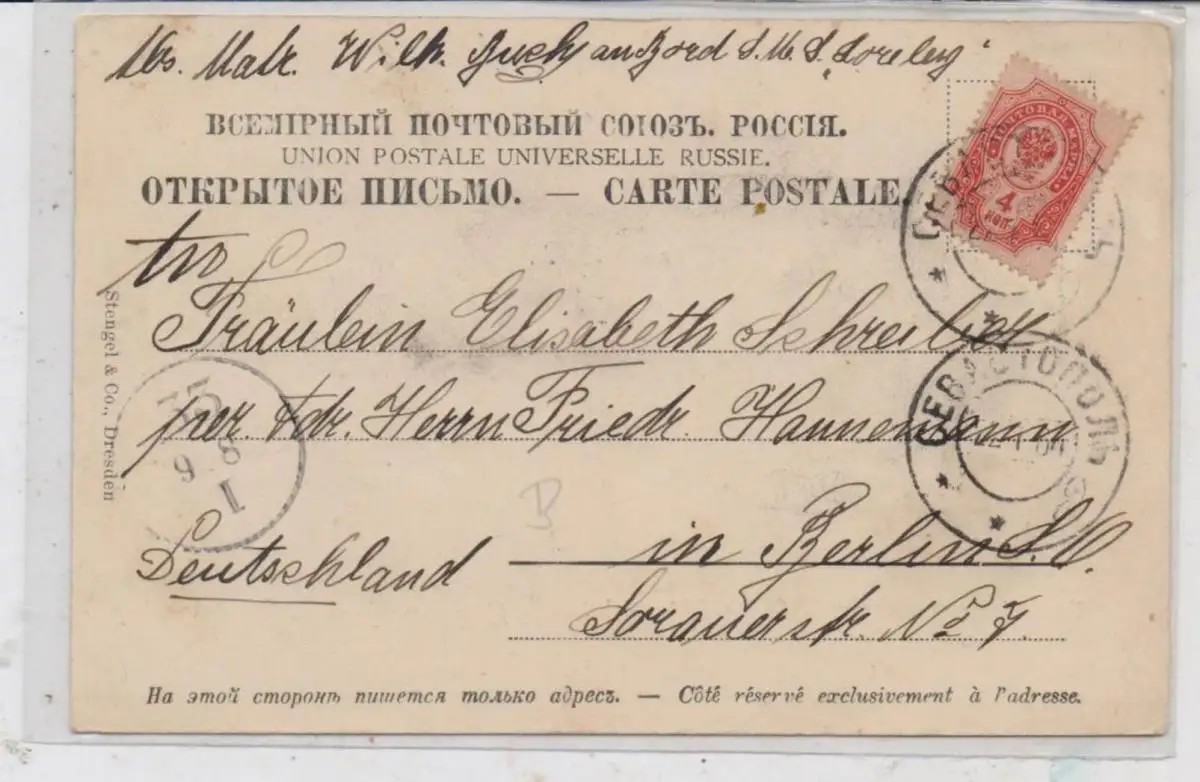 Abs. Matr. Wilh. Busch an Bord S.M.S. „Loreley"
ВСЕМІРНЫЙ ПОЧТОВЫЙ СОЮЗЪ. РОССІЯ.
UNION POSTALE UNIVERSELLE RUSSIE.
ОТКРЫТОЕ ПИСЬМО. — CARTE POSTALE.
ПОЧТОВАЯ МАРКА
4
КОП.
An
Fräulein Elisabeth Schreiber
per Adr. Herrn Friedr. Hannemann
СЕВАСТОПОЛЬ
in Berlin S.O.
Deutschland
Sorauerstr. No 7.
Stengel & Co., Dresden
B
На этой сторонѣ пишется только адресъ. — Côté réservé exclusivement à l'adresse.